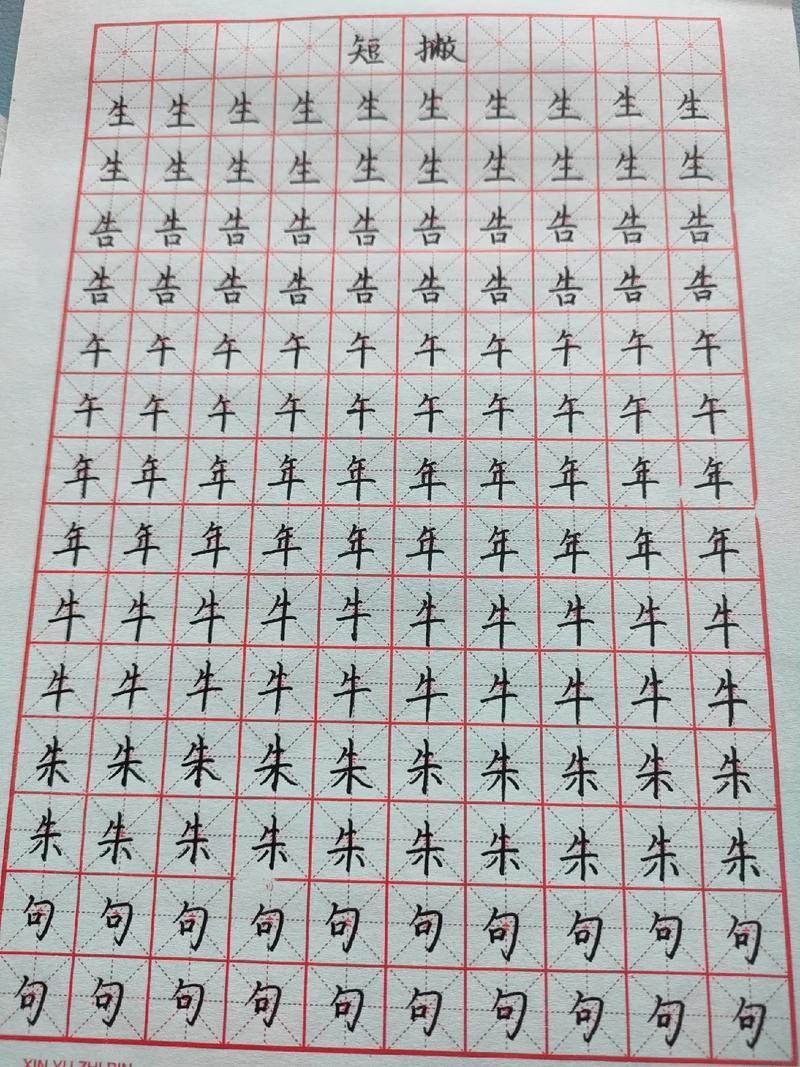 短撇
生生生生生生生生生生
生生生生生生生生生生
告告告告告告告告告告
告告告告告告告告告告
午午午午午午午午午午
午午午午午午午午午午
年年年年年年年年年年
年年年年年年年年年年
牛牛牛牛牛牛牛牛牛牛
牛牛牛牛牛牛牛牛牛牛
朱朱朱朱朱朱朱朱朱朱
朱朱朱朱朱朱朱朱朱朱
句句句句句句句句句句
句句句句句句句句句句
XIN YU ZHI PIN